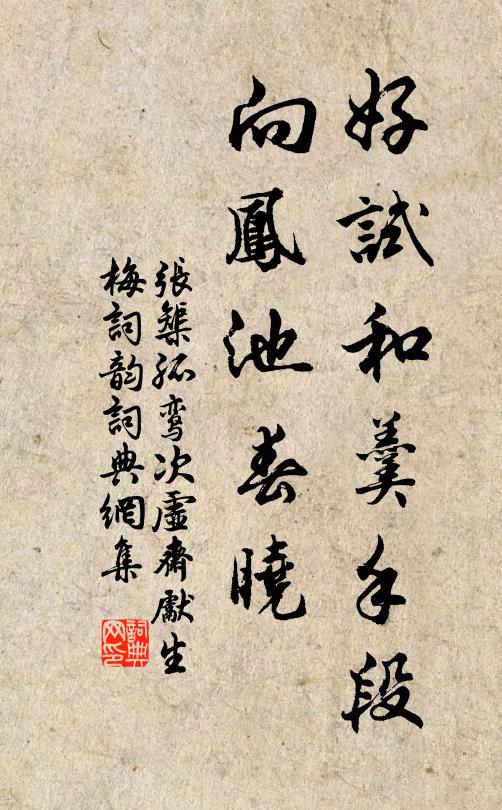 好試和羹手段
向鳳池春曉
張榘孤鸾次虛齋獻生
梅詞韵詞典網集
詞典
网印